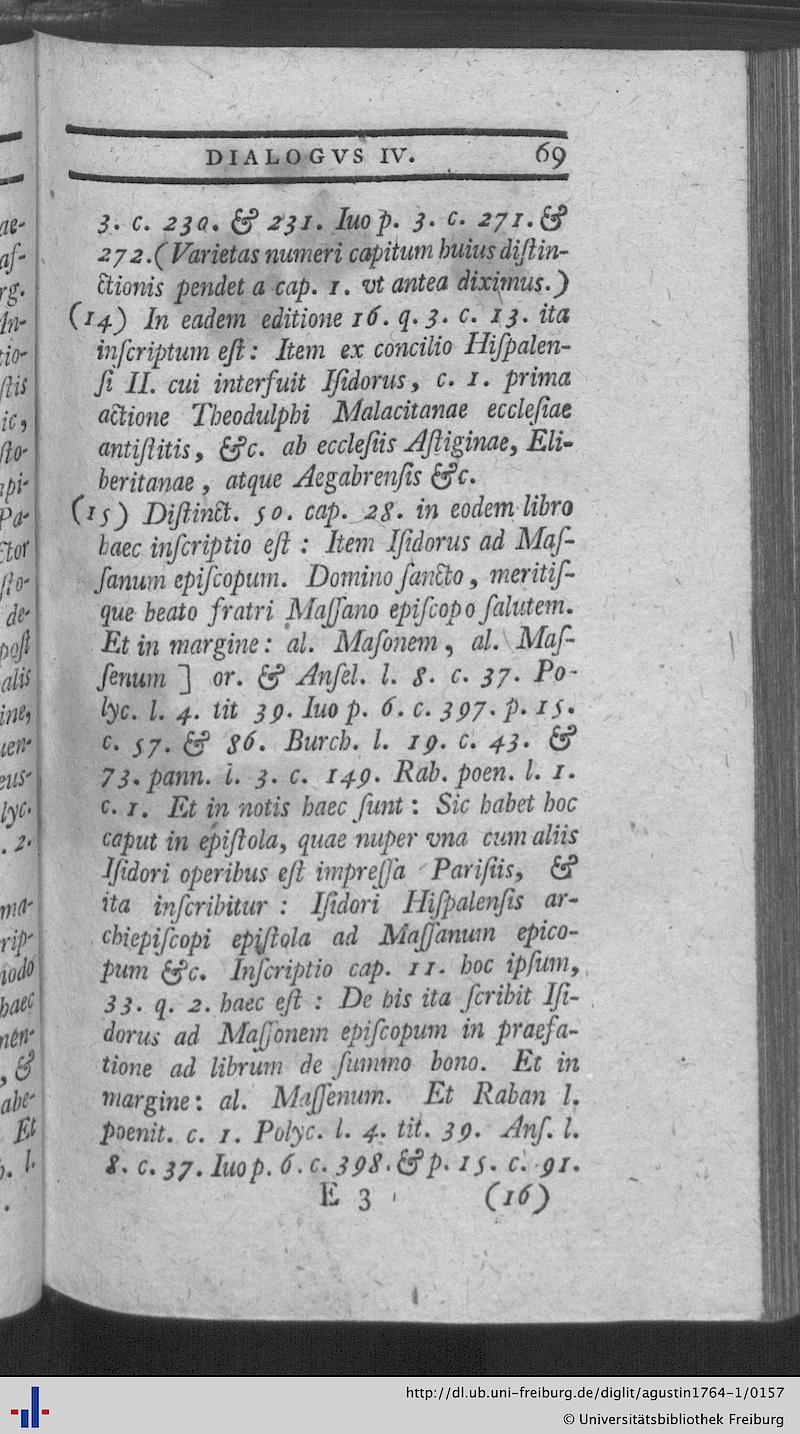 DIALOGVS IV. 69
3. c. 230. & 231. Iuo p. 3. c. 271. &
272. (Varietas numeri capitum huius diſtin-
ctionis pendet a cap. 1. vt antea diximus.)
(14) In eadem editione 16. q. 3. c. 13. ita
inſcriptum eſt: Item ex concilio Hiſpalen-
ſi II. cui interfuit Iſidorus, c. 1. prima
actione Theodulphi Malacitanae eccleſiae
antiſtitis, &c. ab eccleſiis Aſtiginae, Eli-
beritanae, atque Aegabrenſis &c.
(15) Diſtinct. 50. cap. 28. in eodem libro
haec inſcriptio eſt : Item Iſidorus ad Maſ-
ſanum epiſcopum. Domino ſancto, meritiſ-
que beato fratri Maſſano epiſcopo ſalutem.
Et in margine: al. Maſonem, al. Maſ-
ſenum ] or. & Anſel. l. 8. c. 37. Po-
lyc. l. 4. tit 39. Iuo p. 6. c. 397. p. 15.
c. 57. & 86. Burch. l. 19. c. 43. &
73. pann. l. 3. c. 149. Rab. poen. l. 1.
c. 1. Et in notis haec ſunt: Sic habet hoc
caput in epiſtola, quae nuper vna cum aliis
Iſidori operibus eſt impreſſa Pariſiis, &
ita inſcribitur : Iſidori Hiſpalenſis ar-
chiepiſcopi epiſtola ad Maſſanum epico-
pum &c. Inſcriptio cap. 11. hoc ipſum,
33. q. 2. haec eſt : De his ita ſcribit Iſi-
dorus ad Maſſonem epiſcopum in praefa-
tione ad librum de ſummo bono. Et in
margine: al. Maſſenum. Et Raban l.
poenit. c. 1. Polyc. l. 4. tit. 39. Anſ. l.
8. c. 37. Iuo p. 6. c. 398. & p. 15. c. 91.
E 3 (16)
http://dl.ub.uni-freiburg.de/diglit/agustin1764-1/0157
© Universitätsbibliothek Freiburg